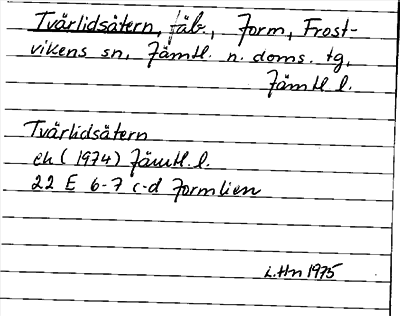 Tvärlidsåtern, fäb., Jorm, Frost-
vikens sn, Jämtl. n. doms. tg,
Jämtl l.
Tvärlidsåtern
ek (1974) Jämtl. l.
22 E 6-7 c-d Jormlien
L.Hn 1975